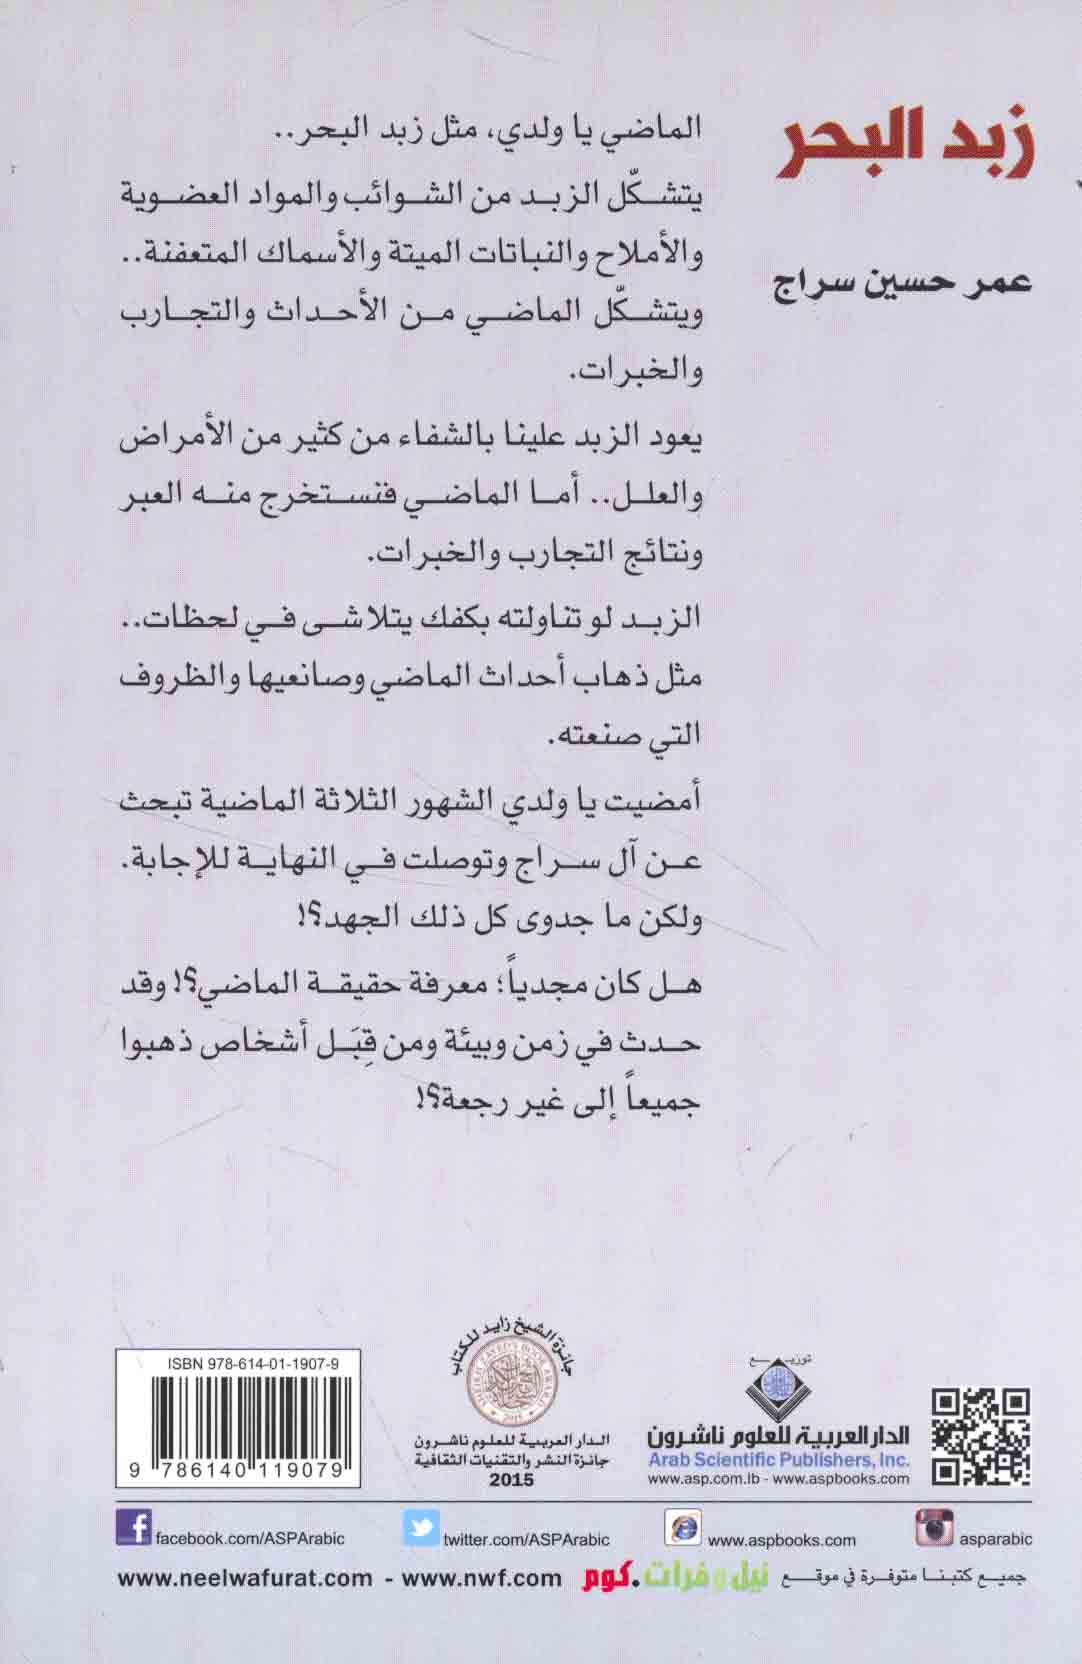 زبد البحر
عمر حسين سراج
الماضي يا ولدي، مثل زبد البحر..
يتشكّل الزبد من الشوائب والمواد العضوية
والأملاح والنباتات الميتة والأسماك المتعفنة..
ويتشكّل الماضي من الأحداث والتجارب
والخبرات.
يعود الزبد علينا بالشفاء من كثير من الأمراض
والعلل.. أما الماضي فنستخرج منه العبر
ونتائج التجارب والخبرات.
الزبد لو تناولته بكفك يتلاشى في لحظات..
مثل ذهاب أحداث الماضي وصانعيها والظروف
التي صنعته.
أمضيت يا ولدي الشهور الثلاثة الماضية تبحث
عن آل سراج وتوصلت في النهاية للإجابة.
ولكن ما جدوى كل ذلك الجهد؟!
هل كان مجدياً؛ معرفة حقيقة الماضي؟! وقد
حدث في زمن وبيئة ومن قِبَل أشخاص ذهبوا
جميعاً إلى غير رجعة؟!
توزيع
الدار العربية للعلوم ناشرون
Arab Scientific Publishers, Inc.
www.asp.com.lb - www.aspbooks.com
جائزة الشيخ زايد للكتاب
2015
الدار العربية للعلوم ناشرون
جائزة النشر والتقنيات الثقافية
2015
ISBN 978-614-01-1907-9
9 786140 119079
asparabic
www.aspbooks.com
twitter.com/ASPArabic
facebook.com/ASPArabic
جميع كتبنا متوفرة في موقع نيل وفرات.كوم www.neelwafurat.com - www.nwf.com